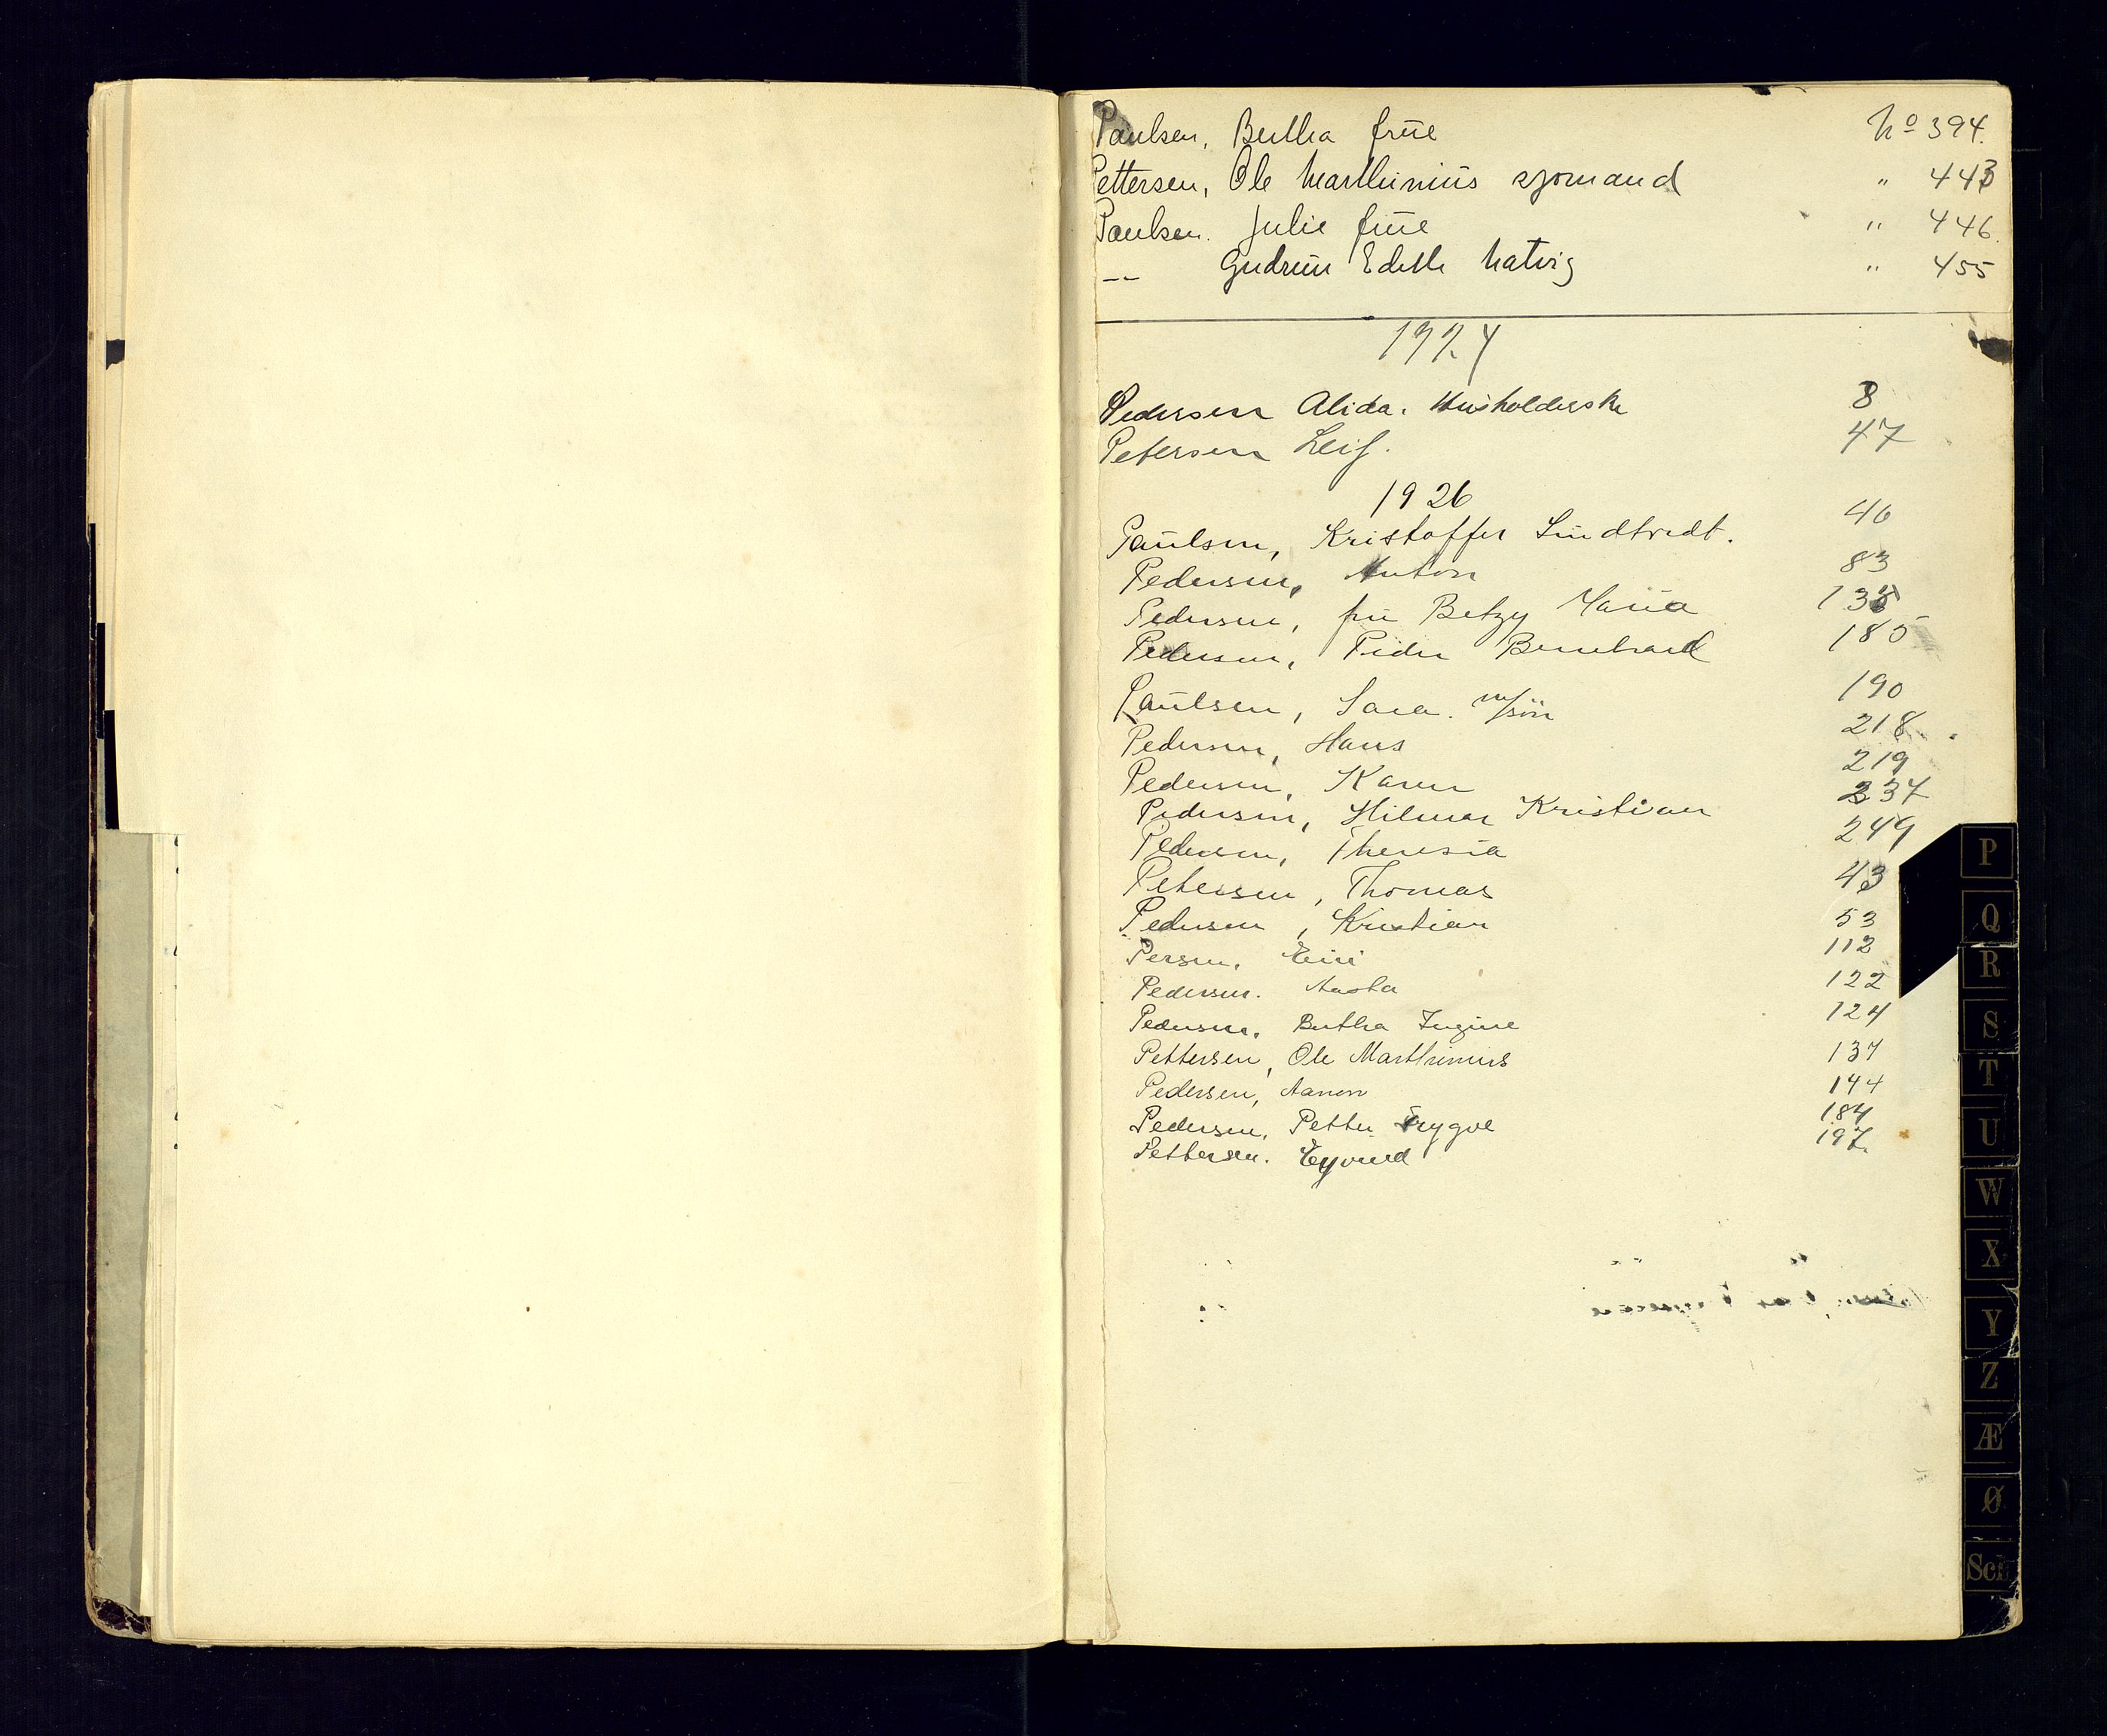 Paulsen, Bertha frue No 394.
Pettersen, Ole Marthinius sjømand " 443
Paulsen. Julie frue " 446.
-- Gudrun Edith Hatvig " 455
1924
Pedersen Alida. Husholderske 8
Petersen Leif. 47
1926
Paulsen, Kristoffer Lindtvedt. 46
Pedersen, Anton 83
Pedersen, fru Betzy Maria 138
Pedersen, Peder Bernhard 185
Paulsen, Sara. m/sön 190
Pedersen, Hans 218
Pedersen, Karen 219
Pedersen, Hilmar Kristian 234
Pedersen, Theresia 249
Petersen, Thomas 43
Pedersen, Kristian 53
Persen, 112
Pedersen. Aasta 122
Pedersen, Bertha Ingine 124
Pettersen, Ole Marthinius 137
Pedersen, Aanon 144
Pedersen, Petter Trygve 184
Pettersen. Eyvind 197.
P
Q
R
S
T
U
W
X
Y
Z
Æ
Ø
Sch